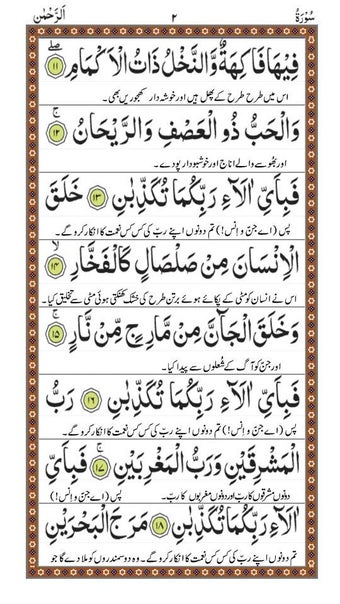 سُوْرَةُ ٢ اَلرَّحْمٰن
فِيْهَا فَاكِهَةٌ وَّالنَّخْلُ ذَاتُ الْاَكْمَامِ ۖ ١١
اس میں طرح طرح کے پھل ہیں اور خوشہ دار کھجوریں بھی۔
وَالْحَبُّ ذُو الْعَصْفِ وَالرَّيْحَانُ ۚ ١٢
اور بھوسے والے اناج اور خوشبودار پودے۔
فَبِاَيِّ اٰلَآءِ رَبِّكُمَا تُكَذِّبٰنِ ١٣ خَلَقَ
پس (اے جن و انس!) تم دونوں اپنے ربّ کی کس کس نعمت کا انکار کرو گے۔
الْاِنْسَانَ مِنْ صَلْصَالٍ كَالْفَخَّارِ ۙ ١٤
اس نے انسان کو مٹی کے پکائے ہوئے برتن کی طرح کی خشک کھنکتی ہوئی مٹی سے تخلیق کیا۔
وَخَلَقَ الْجَآنَّ مِنْ مَّارِجٍ مِّنْ نَّارٍ ۚ ١٥
اور جن کو آگ کے شعلوں سے پیدا کیا۔
فَبِاَيِّ اٰلَآءِ رَبِّكُمَا تُكَذِّبٰنِ ١٦ رَبُّ
پس (اے جن و انس!) تم دونوں اپنے ربّ کی کس کس نعمت کا انکار کرو گے۔
الْمَشْرِقَيْنِ وَرَبُّ الْمَغْرِبَيْنِ ۚ ١٧ فَبِاَيِّ
دونوں مشرقوں کا ربّ اور دونوں مغربوں کا ربّ۔ پس (اے جن و انس!)
اٰلَآءِ رَبِّكُمَا تُكَذِّبٰنِ ١٨ مَرَجَ الْبَحْرَيْنِ
تم دونوں اپنے ربّ کی کس کس نعمت کا انکار کرو گے۔ وہ دو سمندروں کو ملا دے گا جو